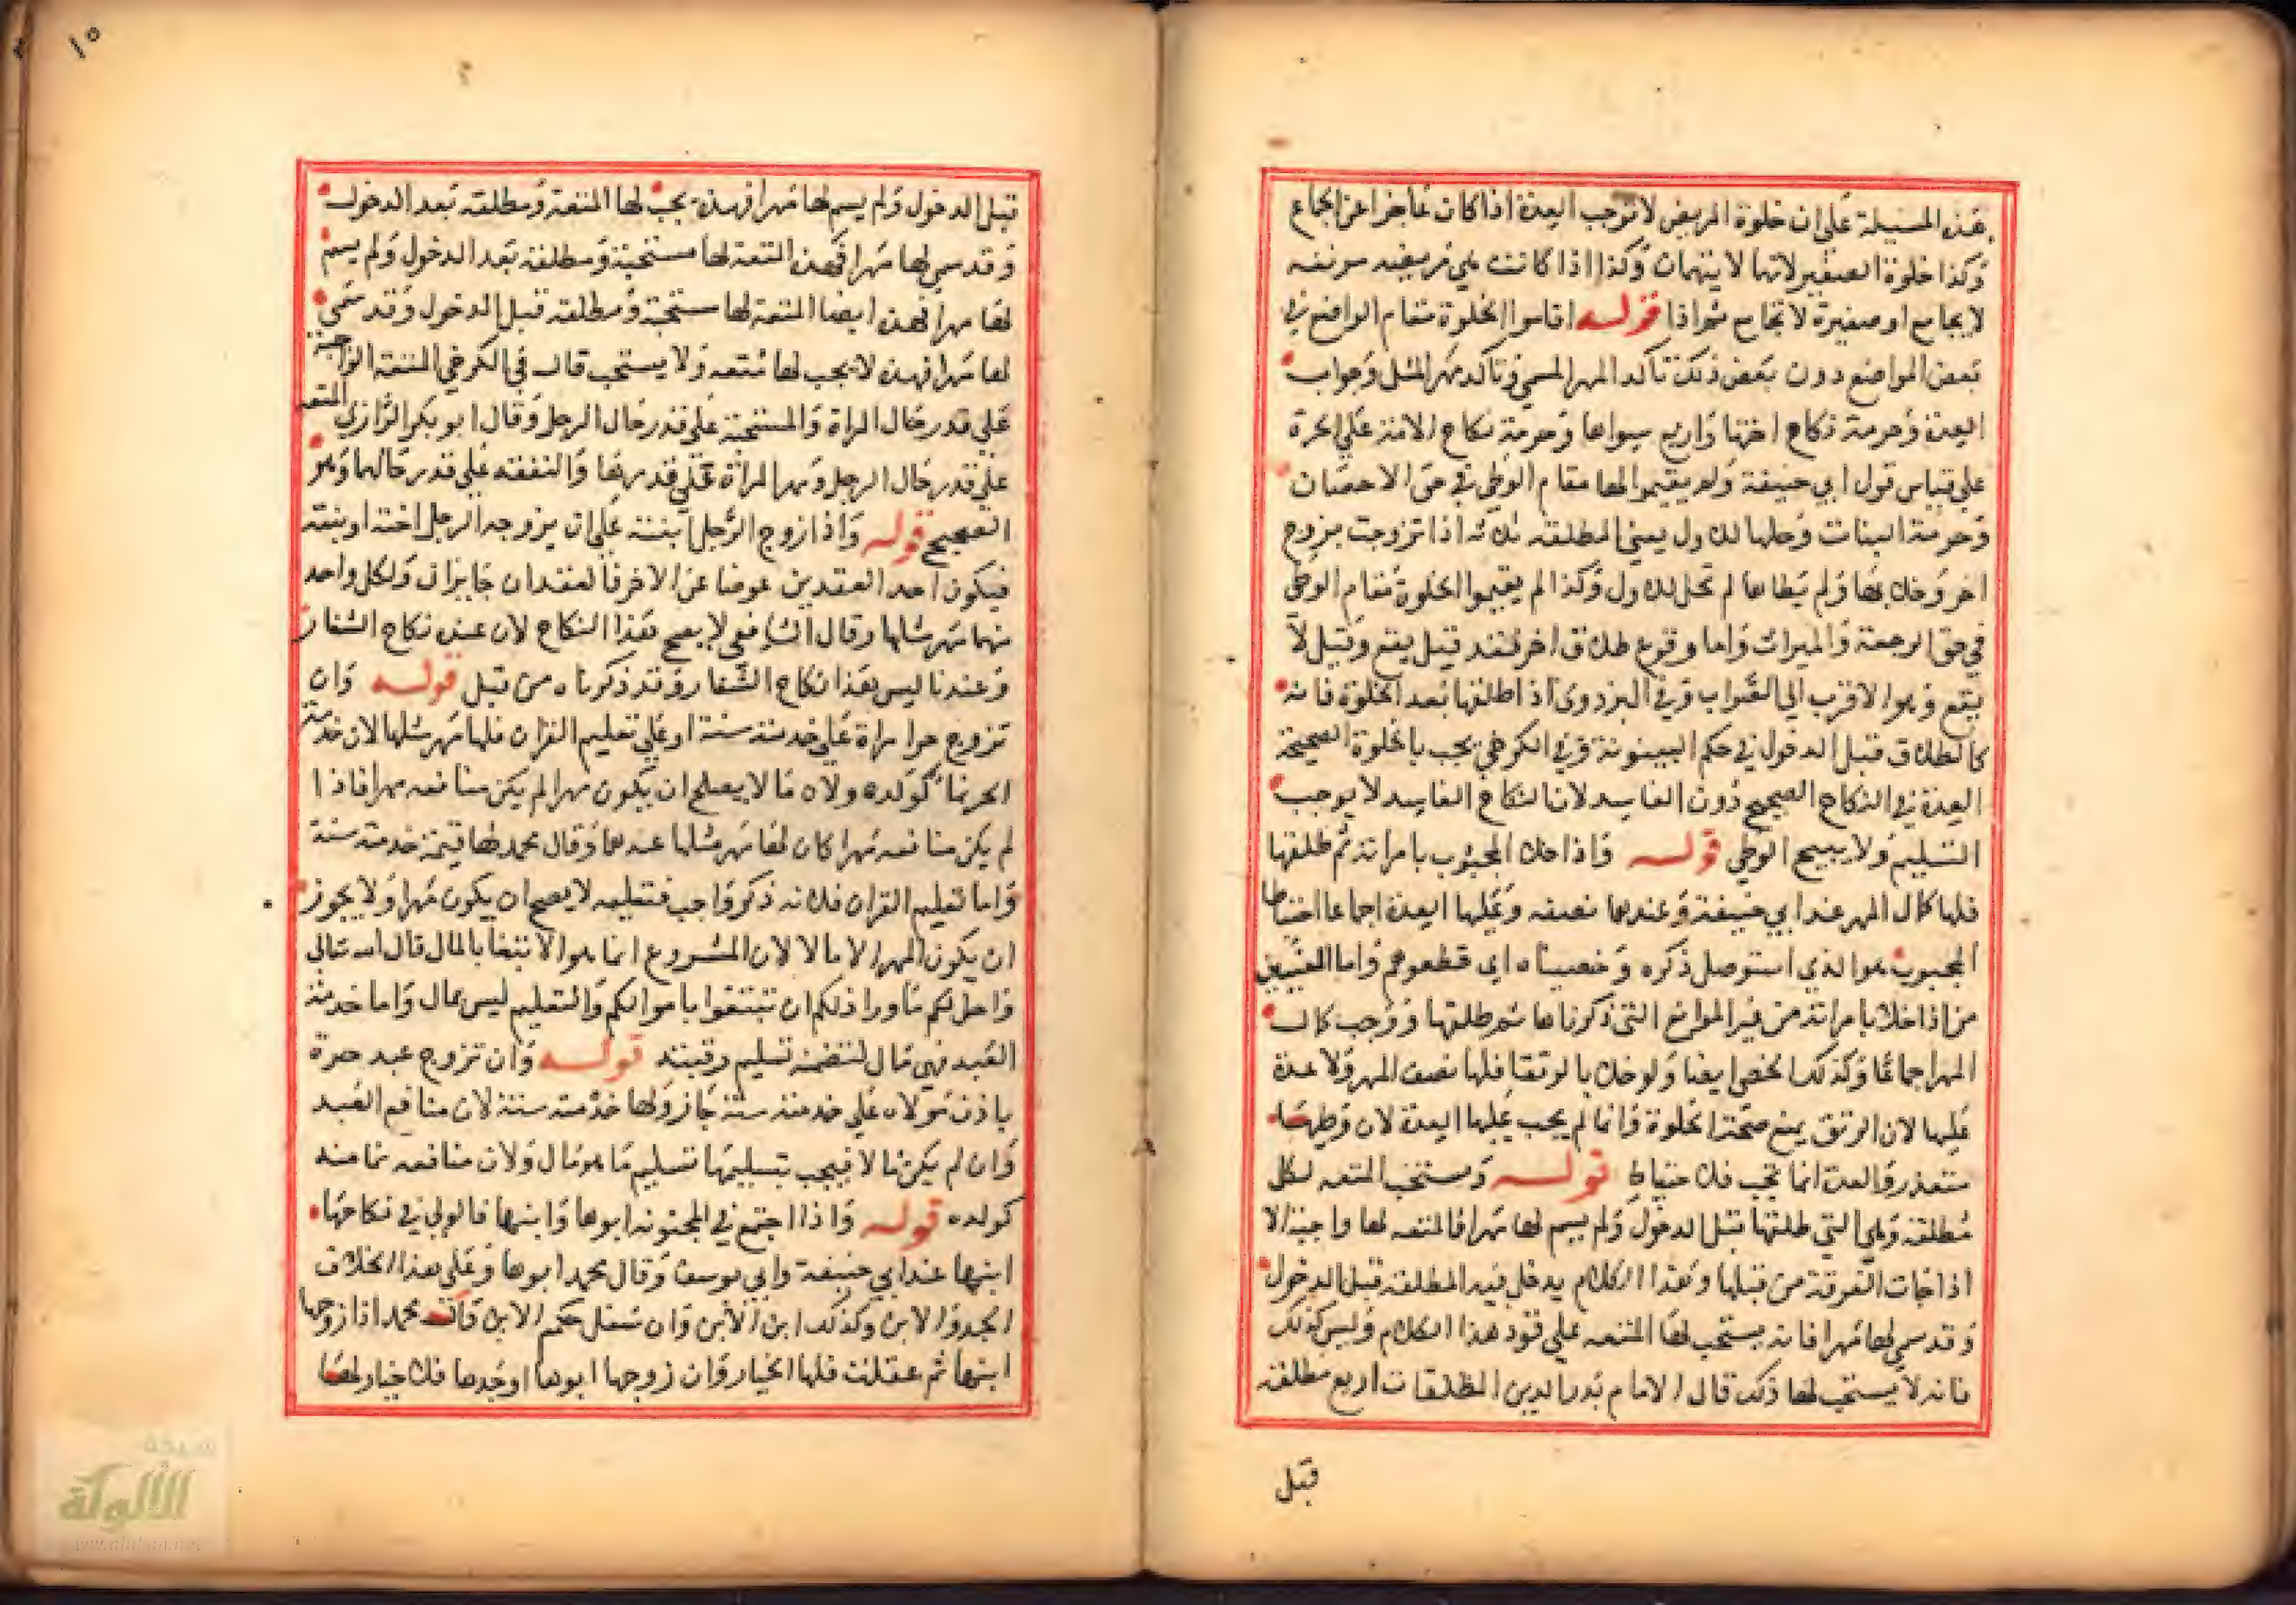 هذه المسيلة على ان خلوة المريض لا توجب العدة اذا كان عاجزا عن الجماع
وكذا خلوة الصغير لانها لا يتهمان وكذا اذا كانت هي مريضه مرضه
لا يجامع او صغيرة لا تجامع ثم اذا قوله اقاموا الخلوة مقام الواضع في
بعض المواضع دون بعض ذلك تاكد المهر المسمي وتاكد مهر المثل وجواب
العدة وحرمة نكاح اختها واربع سواها وحرمة نكاح الامة علي الحرة
علي قياس قول ابي حنيفة ولم يقيموا لها مقام الوطي في حق الاحصان
وحرمة البنات وحلها للاول يعني المطلقه ثلاثه اذا تزوجت بزوج
اخر وخلا بها ولم يطاها لم تحل للاول وكذا لم يقيموا الخلوة مقام الوطي
في حق الرجعة والميراث واما وقوع طلاق اخر فقد قيل يقع وقيل لا
يقع وهوا لاقرب الي الصواب وفي البزدوي اذ اطلقها بعد الخلوة فانه
كالطلاق قبل الدخول في حكم البينونة وفي الكرخي يجب بالخلوة الصحيحة
العدة في النكاح الصحيح دون الفاسد لان النكاح الفاسد لا يوجب
التسليم ولا يبيح الوطي قوله واذا خلا المجبوب بامراته ثم طلقها
فلها كمال المهر عند ابي حنيفة وعندهما نصفه وعليها العدة اجماعا احتياطا
المجبوب هوا لذي استوصل ذكره وخصياه اي قطعوهم واما العنين
من اذا خلا بامراته من غير الموانع التي ذكرناها ثم طلقها ووجب كمال
المهر اجماعا وكذلك الخصي ايضا ولو خلا بالرتقا فلها نصف المهر ولا عدة
عليها لان الرتق يمنع صحة الخلوة وانما لم يجب عليها العدة لان وطيها
متعذر والعدة انما تجب فلا حتياط قوله ومستحب المتعه لكل
مطلقة وهي التي طلقها قبل الدخول ولم يسم لها مهرا فالمتعه لها واجبة الا
اذا جات الفرقة من قبلها وهذا الكلام يدخل فيه المطلقه قبل الدخول
وقد سمي لها مهرا فانه يستحب لها المتعه علي قود هذا الكلام وليس كذلك
فانه لا يستحب لها ذلك قال الامام بدر الدين المطلقات اربع مطلقة
قبل
١٥
قبل الدخول ولم يسم لها مهرا فهذه يجب لها المتعة ومطلقه بعد الدخول
وقد سمي لها مهرا فهذه المتعه لها مستحبة ومطلقة بعد الدخول ولم يسم
لها مهرا فهذه ايضا المتعه لها مستحبة ومطلقه قبل الدخول وقد سمي
لها مهرا فهذه لا يجب لها متعه ولا يستحب قال في الكرخي المتعه الواجبة
علي قدر حال المراة والمستحبة علي قدر حال الرجل وقال ابو بكر الرازي المتعه
علي قدر حال الرجل ومهر المراة علي قدرها والنفقه علي قدر حالهما وهو
الصحيح قوله واذا زوج الرجل ابنته علي ان يزوجه الرجل اخته او بنته
فيكون احد العقدين عوضا عن الاخر فالعقدان جايزان ولكل واحد
منهما مهر مثلها وقال الشافعي لا يصح هذا النكاح لان عنده نكاح الشغار
وعندنا ليس هذا نكاح الشغار وقد ذكرناه من قبل قوله وان
تزوج حر امراة علي خدمته سنة او علي تعليم القران فلها مهر مثلها لان خدمة
الحر مما كولده ولاه مالا يصلح ان يكون مهرا لم يكن منافعه مهرا فاذا
لم يكن منافعه مهرا كان لها مهر مثلها عندهما وقال محمد لها قيمة خدمته سنة
واما تعليم القران فلانه ذكر واجب فتعليمه لا يصح ان يكون مهرا ولا يجوز
ان يكون المهر الا مالا لان المشروع انما هوا لابتغا بالمال قال الله تعالي
واحل لكم ما ورا ذلكم ان تبتغوا باموالكم والتعليم ليس بمال واما خدمة
العبد فهي مال لتضمنه تسليم رقبته قوله وان تزوج عبد حرة
باذن مولاه علي خدمته سنة جاز ولها خدمته سنة لان منافع العبد
وان لم يكن مالا فيجب بتسليمها تسليم ما هو مال ولان منافعه مما منه
كولده قوله واذا اجتمع في المجنونه ابوها وابنها فالولي في نكاحها
ابنها عند ابي حنيفة وابي يوسف وقال محمد ابوها وعلي هذا الخلاف
الجد والابن وكذلك ابن الابن وان سفل حكم الابن قال محمد اذا زوجها
ابنها ثم عقلت فلها الخيار وان زوجها ابوها او جدها فلا خيار لها
شبكة
الألوكة
www.alukah.net